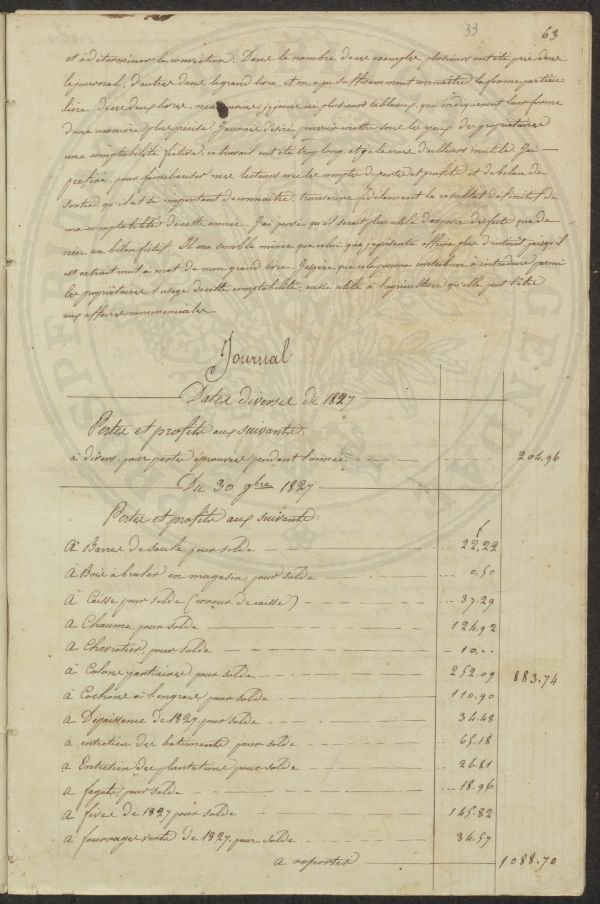 33 63
et à déterminer la conviction. Dans le nombre de ces exemples, plusieurs ont été pris dans
le journal, d'autres dans le grand livre, et on a pu suffisamment connaître la forme particu-
lière de ces deux livres, néanmoins je joins ici plusieurs tableaux, qui indiqueront leur forme
d'une manière plus précise. J'aurais désiré pouvoir mettre sous les yeux des propriétaires
une comptabilité entière, ce travail eut été trop long, et je le crois d'ailleurs inutile. J'ai
préféré, pour familiariser mes lecteurs avec les compte de perte et profits et de bilan de
sortie, qu'il est si important de connaître, transcrire fidèlement le résultat définitif de
ma comptabilité de cette année. J'ai pensé qu'il serait plus utile d'exposer des faits que de
créer un bilan fictif. Il me semble même que celui que je présente offrira plus d'intérêt, puisqu'il
est extrait mot à mot de mon grand livre. J'espère que cela pourra contribuer à introduire parmi
les propriétaires l'usage de cette comptabilité, aussi utile à l'agriculture qu'elle peut l'être
aux affaires commerciales.
Journal
Dates diverses de 1827
Pertes et profits aux suivants:
à divers, pour pertes éprouvées pendant l'année 204.96
Du 30 9bre 1827
Pertes et profits aux suivants:
à Barres de saule, pour solde 22,22
à Bois à bruler en magasin, pour solde 0,50
à Caisse pour solde (erreur de caisse) 37.29
à Chaume, pour solde 124.92
à Chevrotier, pour solde 10,,
à Colons partiaires pour solde 252.09 883.74
à Cochons à l'engrais pour solde 110.90
à Dépaissance de 1827, pour solde 34.48
à entretien des batiments, pour solde 65.18
à Entretien des plantations pour solde 26.81
à fagots pour solde 18.96
à fèves de 1827 pour solde 145.82
à fourrages verts de 1827, pour solde 34.57
à reporter 1088.70